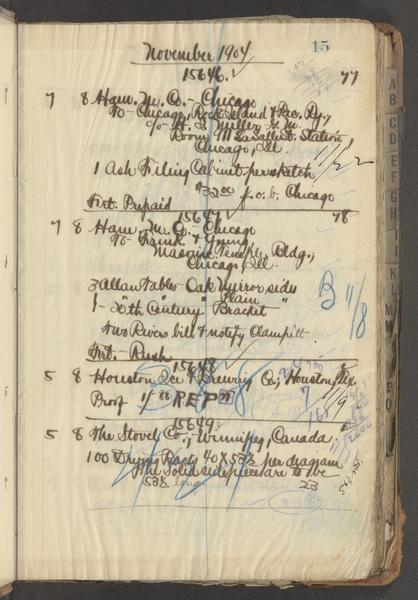 November 1904
15
15646.
77
7 8 Ham. M. Co. - Chicago
To - Chicago, Rock Island & Pac. Ry.,
c/o H. S. Miller G. M.
Room 911 La Salle St. Station,
Chicago, Ill.
11/22
1 Ash Filing Cabinet per sketch
$32.00 f.o.b. Chicago
Frt. Prepaid
15647
78
7 8 Ham. M. Co. - Chicago
To - Frank & Young,
Masonic Temple Bldg.,
Chicago, Ill.
3 Allan tables Oak Mirror sides
Plain
1 - 20"th Century" Bracket
B 11/8
Two Rivers bill & notify Clampitt
Frt. - Rush
15648
5 8 Houston Ice & Brewing Co., Houston, Tex.
Proof 1/ "REP"
15649
5 8 The Stovel Co., - Winnipeg, Canada
100 Drying Racks 40 x 53½ per diagram
The solid sidepieces are to be
53½ long
23
A
B
C
D
E
F
G
H
I
J
K
L
M